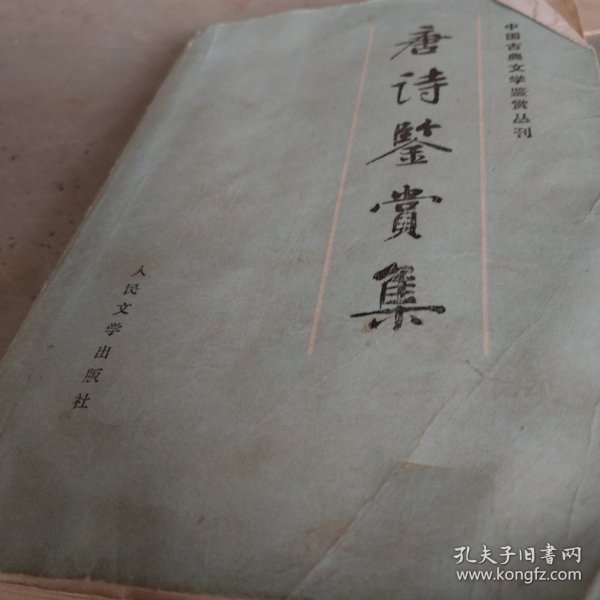 中国古典文学鉴赏丛刊
唐诗鑒赏集
人民文学出版社
孔夫子旧书网
www.kongfz.com